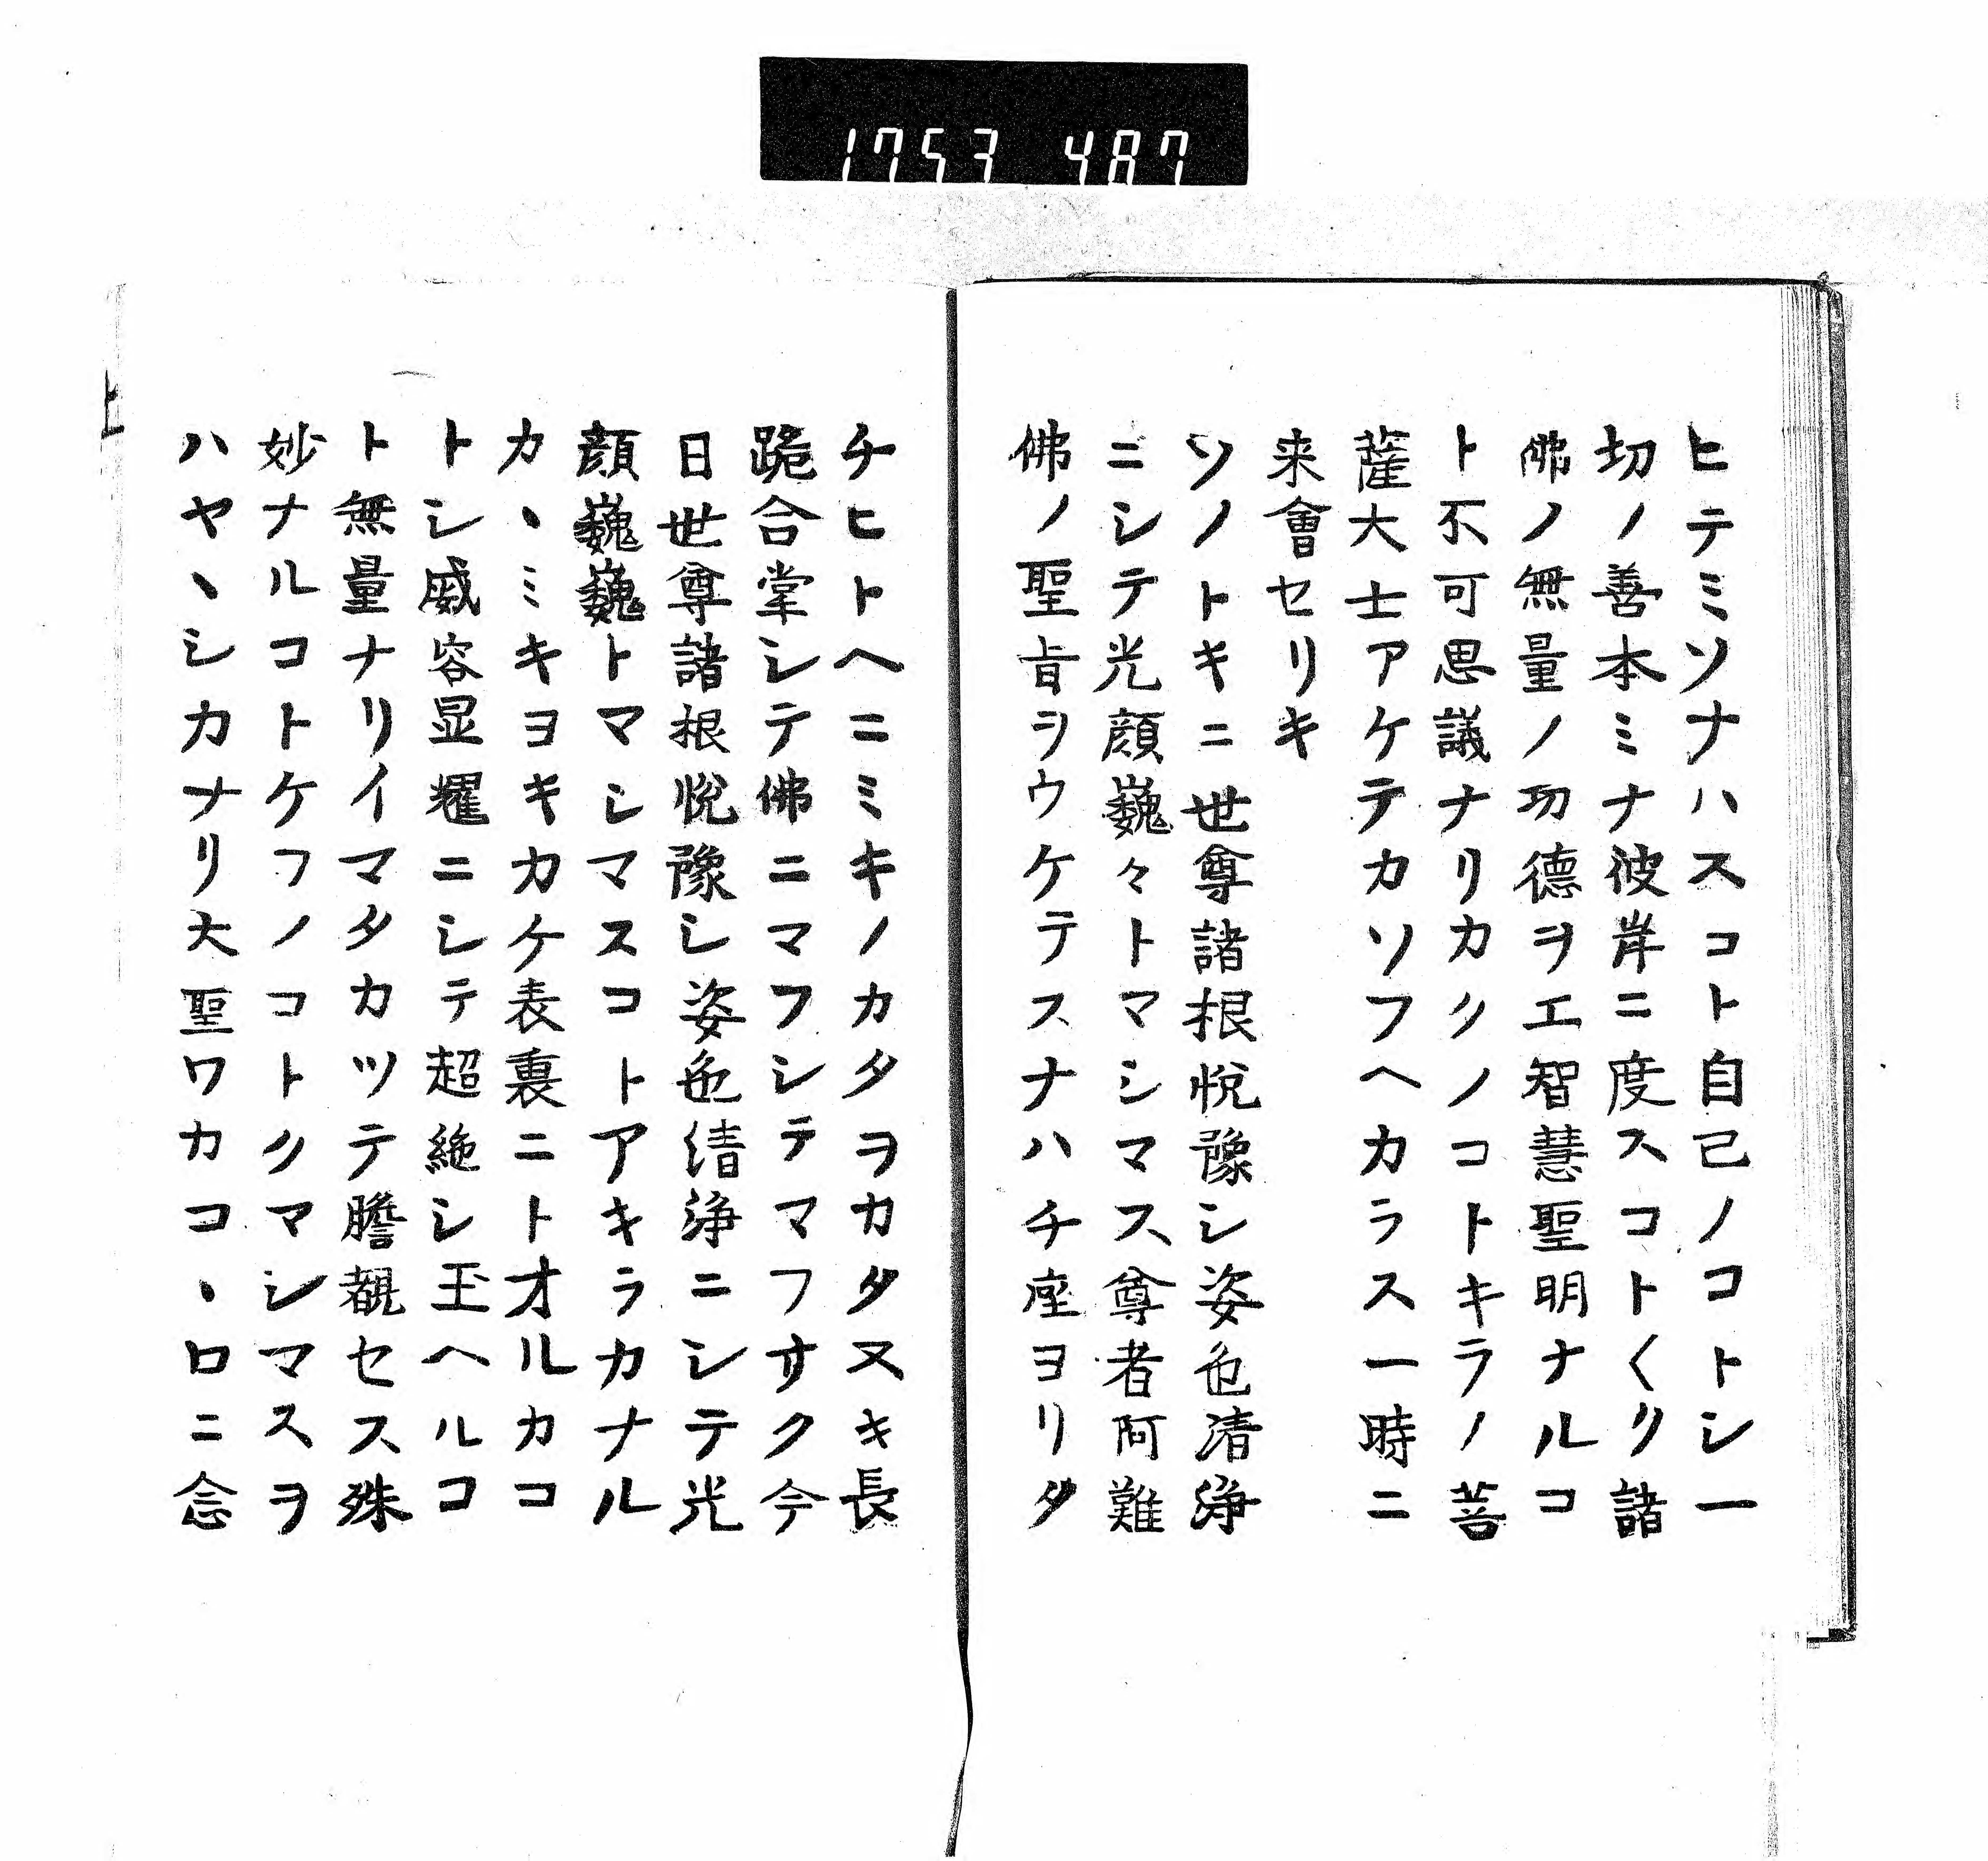 1753 487
ヒテミソナハスコト自己ノコトシ一
切ノ善本ミナ彼岸ニ度スコト〱ク諸
佛ノ無量ノ功德ヲエ智慧聖明ナルコ
ト不可思議ナリカクノコトキラノ菩
薩大士アケテカソフヘカラス一時ニ
来會セリキ
ソノトキニ世尊諸根悦豫シ姿色清浄
ニシテ光顔巍々トマシマス尊者阿難
佛ノ聖旨ヲウケテスナハチ座ヨリタ
チヒトヘニミキノカタヲカタヌキ長
跪合掌シテ佛ニマフシテマフサク今
日世尊諸根悦豫シ姿色清浄ニシテ光
顔巍巍トマシマスコトアキラカナル
カヽミキヨキカケ表裏ニトオルカコ
トシ威容显耀ニシテ超絶シ玉ヘルコ
ト無量ナリイマタカツテ瞻覩セス殊
妙ナルコトケフノコトクマシマスヲ
ハヤヽシカナリ大聖ワカコヽロニ念
上